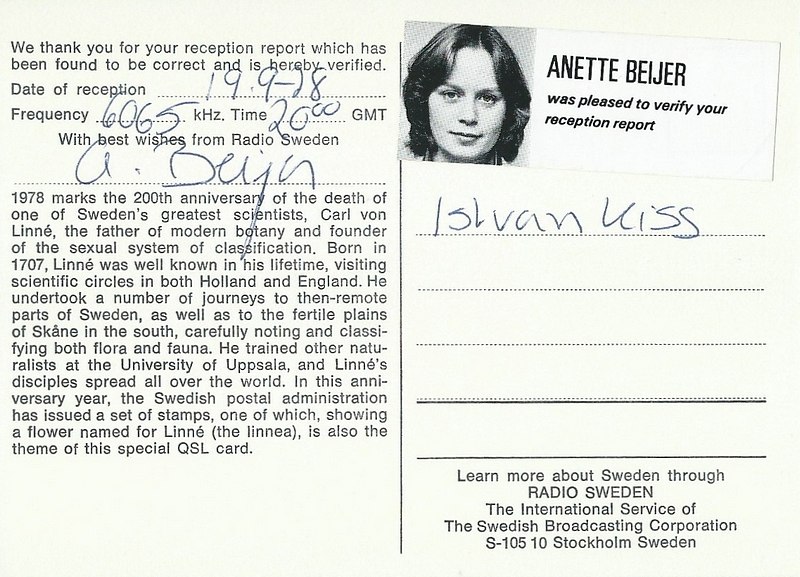 We thank you for your reception report which has
been found to be correct and is hereby verified.
Date of reception 19.9-78
Frequency 6065 kHz. Time 20⁰⁰ GMT
With best wishes from Radio Sweden
A. Beijer
1978 marks the 200th anniversary of the death of
one of Sweden's greatest scientists, Carl von
Linné, the father of modern botany and founder
of the sexual system of classification. Born in
1707, Linné was well known in his lifetime, visiting
scientific circles in both Holland and England. He
undertook a number of journeys to then-remote
parts of Sweden, as well as to the fertile plains
of Skåne in the south, carefully noting and classi-
fying both flora and fauna. He trained other natu-
ralists at the University of Uppsala, and Linné's
disciples spread all over the world. In this anni-
versary year, the Swedish postal administration
has issued a set of stamps, one of which, showing
a flower named for Linné (the linnea), is also the
theme of this special QSL card.
ANETTE BEIJER
was pleased to verify your
reception report
Istvan Kiss
Learn more about Sweden through
RADIO SWEDEN
The International Service of
The Swedish Broadcasting Corporation
S-105 10 Stockholm Sweden